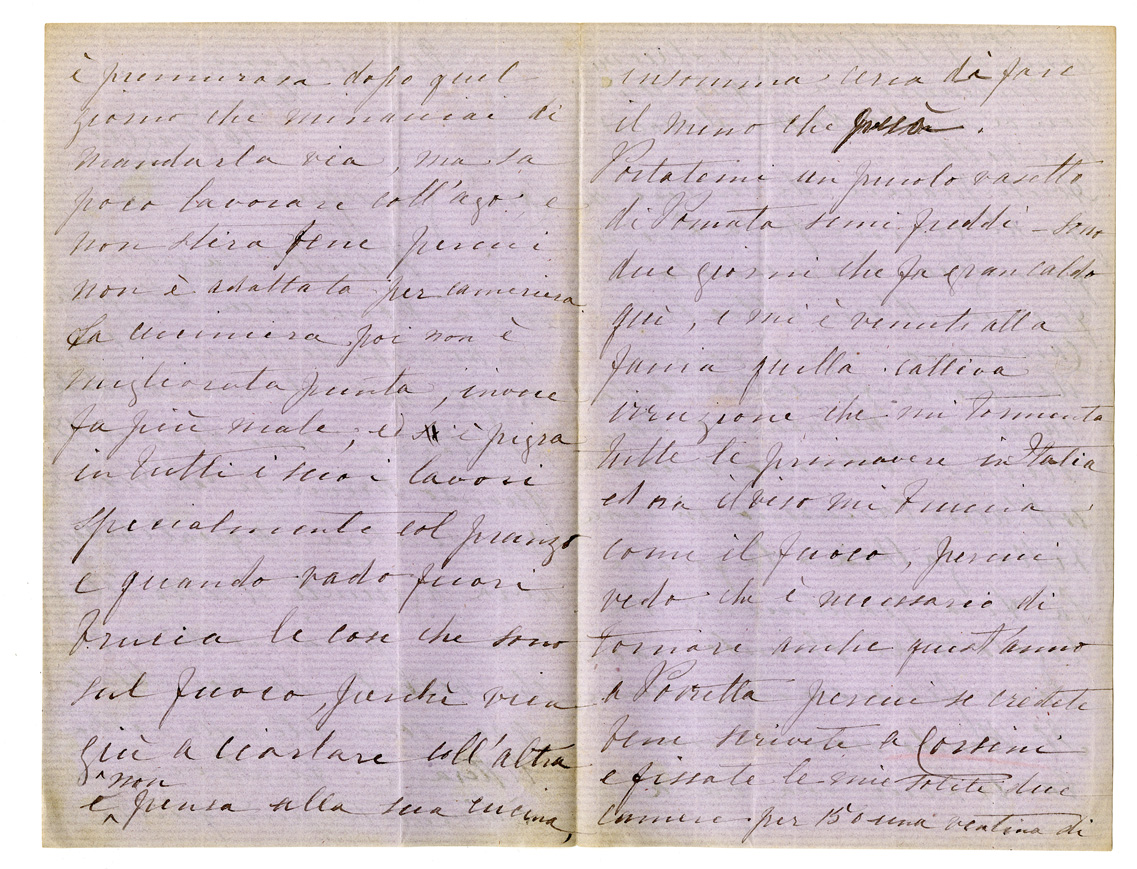 è premurosa dopo quel
giorno che minacciai di
mandarla via, ma sa
poco lavorare coll'ago e
non stira bene perciò
non è adattata per cameriera
La cuciniera poi non è
migliorata punto, invece
fa più male, ed è pigra
in tutti i suoi lavori
specialmente col pranzo
e quando vado fuori
brucia le cose che sono
sul fuoco perchè viene
giù a ciarlare coll'altra
non
e pensa alla sua cucina,
insomma cerca di fare
il meno che può.
Portatemi un piccolo vasetto
di Pomata semi freddi – sono
due giorni che fa gran caldo
quì, e mi è venuto alla
faccia quella cattiva
irruzione che mi tormenta
tutte le primavere in Italia
ed ora il viso mi brucia
come il fuoco, perciò
vedo che è necessario di
tornare anche quest'anno
a Porretta perciò se credete
bene scrivete a Corsini
e fissate le mie solite due
camere per 15 o una ventina di